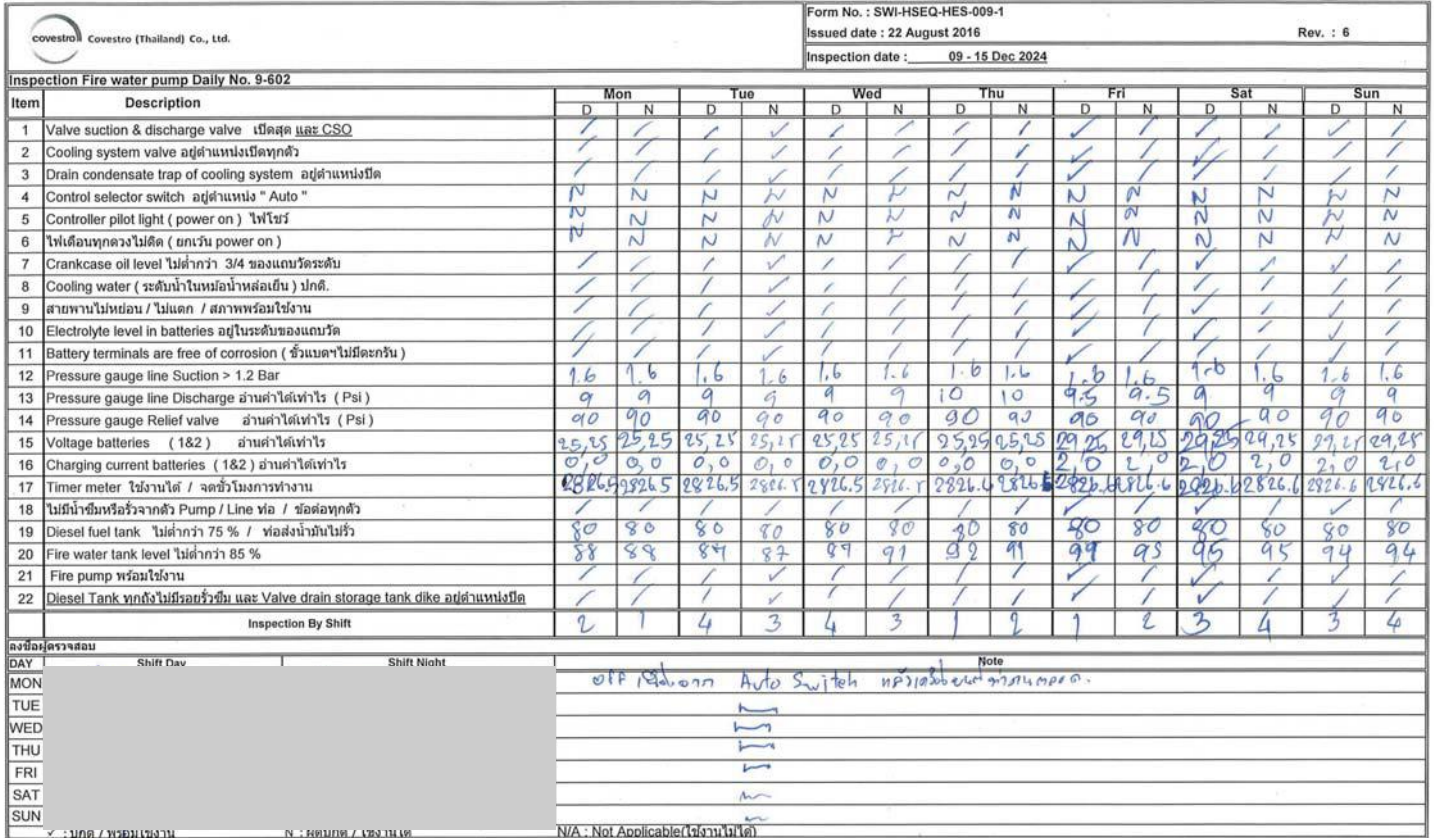 covestro Covestro (Thailand) Co., Ltd.
Form No. : SWI-HSEQ-HES-009-1
Issued date : 22 August 2016 Rev. : 6
Inspection date : 09 - 15 Dec 2024
Inspection Fire water pump Daily No. 9-602
Item Description Mon Tue Wed Thu Fri Sat Sun
D N D N D N D N D N D N D N
1 Valve suction & discharge valve เปิดสุด และ CSO ✓ ✓ ✓ ✓ ✓ ✓ ✓ ✓ ✓ ✓ ✓ ✓ ✓ ✓
2 Cooling system valve อยู่ตำแหน่งเปิดทุกตัว ✓ ✓ ✓ ✓ ✓ ✓ ✓ ✓ ✓ ✓ ✓ ✓ ✓ ✓
3 Drain condensate trap of cooling system อยู่ตำแหน่งปิด ✓ ✓ ✓ ✓ ✓ ✓ ✓ ✓ ✓ ✓ ✓ ✓ ✓ ✓
4 Control selector switch อยู่ตำแหน่ง " Auto " N N N N N N N N N N N N N N
5 Controller pilot light ( power on ) ไฟโชว์ N N N N N N N N N N N N N N
6 ไฟเตือนทุกดวงไม่ติด ( ยกเว้น power on ) N N N N N N N N N N N N N N
7 Crankcase oil level ไม่ต่ำกว่า 3/4 ของแถบวัดระดับ ✓ ✓ ✓ ✓ ✓ ✓ ✓ ✓ ✓ ✓ ✓ ✓ ✓ ✓
8 Cooling water ( ระดับน้ำในหม้อน้ำหล่อเย็น ) ปกติ. ✓ ✓ ✓ ✓ ✓ ✓ ✓ ✓ ✓ ✓ ✓ ✓ ✓ ✓
9 สายพานไม่หย่อน / ไม่แตก / สภาพพร้อมใช้งาน ✓ ✓ ✓ ✓ ✓ ✓ ✓ ✓ ✓ ✓ ✓ ✓ ✓ ✓
10 Electrolyte level in batteries อยู่ในระดับของแถบวัด ✓ ✓ ✓ ✓ ✓ ✓ ✓ ✓ ✓ ✓ ✓ ✓ ✓ ✓
11 Battery terminals are free of corrosion ( ขั้วแบตฯไม่มีตะกรัน ) ✓ ✓ ✓ ✓ ✓ ✓ ✓ ✓ ✓ ✓ ✓ ✓ ✓ ✓
12 Pressure gauge line Suction > 1.2 Bar 1.6 1.6 1.6 1.6 1.6 1.6 1.6 1.6 1.6 1.6 1.6 1.6 1.6 1.6
13 Pressure gauge line Discharge อ่านค่าได้เท่าไร ( Psi ) 9 9 9 9 9 9 10 10 9.5 9.5 9 9 9 9
14 Pressure gauge Relief valve อ่านค่าได้เท่าไร ( Psi ) 90 90 90 90 90 90 90 90 90 90 90 90 90 90
15 Voltage batteries ( 1&2 ) อ่านค่าได้เท่าไร 25,25 25,25 25,25 25,25 25,25 25,25 25,25 25,25 29,25 29,25 29,25 29,25 29,25 29,25
16 Charging current batteries ( 1&2 ) อ่านค่าได้เท่าไร 0,0 0,0 0,0 0,0 0,0 0,0 0,0 0,0 2,0 2,0 2,0 2,0 2,0 2,0
17 Timer meter ใช้งานได้ / จดชั่วโมงการทำงาน 2826.5 2826.5 2826.5 2826.5 2826.5 2826.5 2826.6 2826.6 2826.6 2826.6 2826.6 2826.6 2826.6
18 ไม่มีน้ำซึมหรือรั่วจากตัว Pump / Line ท่อ / ข้อต่อทุกตัว ✓ ✓ ✓ ✓ ✓ ✓ ✓ ✓ ✓ ✓ ✓ ✓ ✓ ✓
19 Diesel fuel tank ไม่ต่ำกว่า 75 % / ท่อส่งน้ำมันไม่รั่ว 80 80 80 80 80 80 80 80 80 80 80 80 80 80
20 Fire water tank level ไม่ต่ำกว่า 85 % 88 88 87 87 91 92 91 95 95 94 94
21 Fire pump พร้อมใช้งาน ✓ ✓ ✓ ✓ ✓ ✓ ✓ ✓ ✓ ✓ ✓ ✓ ✓ ✓
22 Diesel Tank ทุกถังไม่มีรอยรั่วซึม และ Valve drain storage tank dike อยู่ตำแหน่งปิด ✓ ✓ ✓ ✓ ✓ ✓ ✓ ✓ ✓ ✓ ✓ ✓ ✓ ✓
Inspection By Shift 2 1 4 3 4 3 1 2 1 2 3 4 3 4
ลงชื่อผู้ตรวจสอบ
DAY Shift Day Shift Night Note
MON off เนื่องจาก Auto Switch
TUE
WED
THU
FRI
SAT
SUN
✓ : ปกติ / พร้อมใช้งาน N : ผิดปกติ / ใช้งานได้ N/A : Not Applicable(ใช้งานไม่ได้)